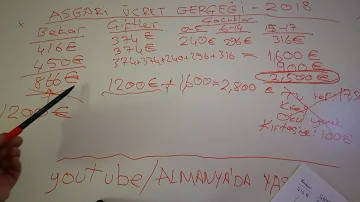 ASGARİ ÜCRET GERÇEĞİ - 2018
Bekar Çiftler Çocuklar
0-5 6-14 15-17
416€ 374€ 240€ 296€ 316€
450€ 374€
866€ 374+374+240+296+316 = 1600€
900€
2,500€
1200€ + 1600 = 2,800€
1200€
Kira
Kırtasiye: 100€
youtube/ALMANYA'DA YAŞ